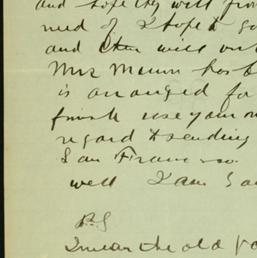 and hope they will from
need of I hope to go
and then will
Mrs has
is arranged for
finish use your
regard to sending
San Francisco
well I am
P.S
the old